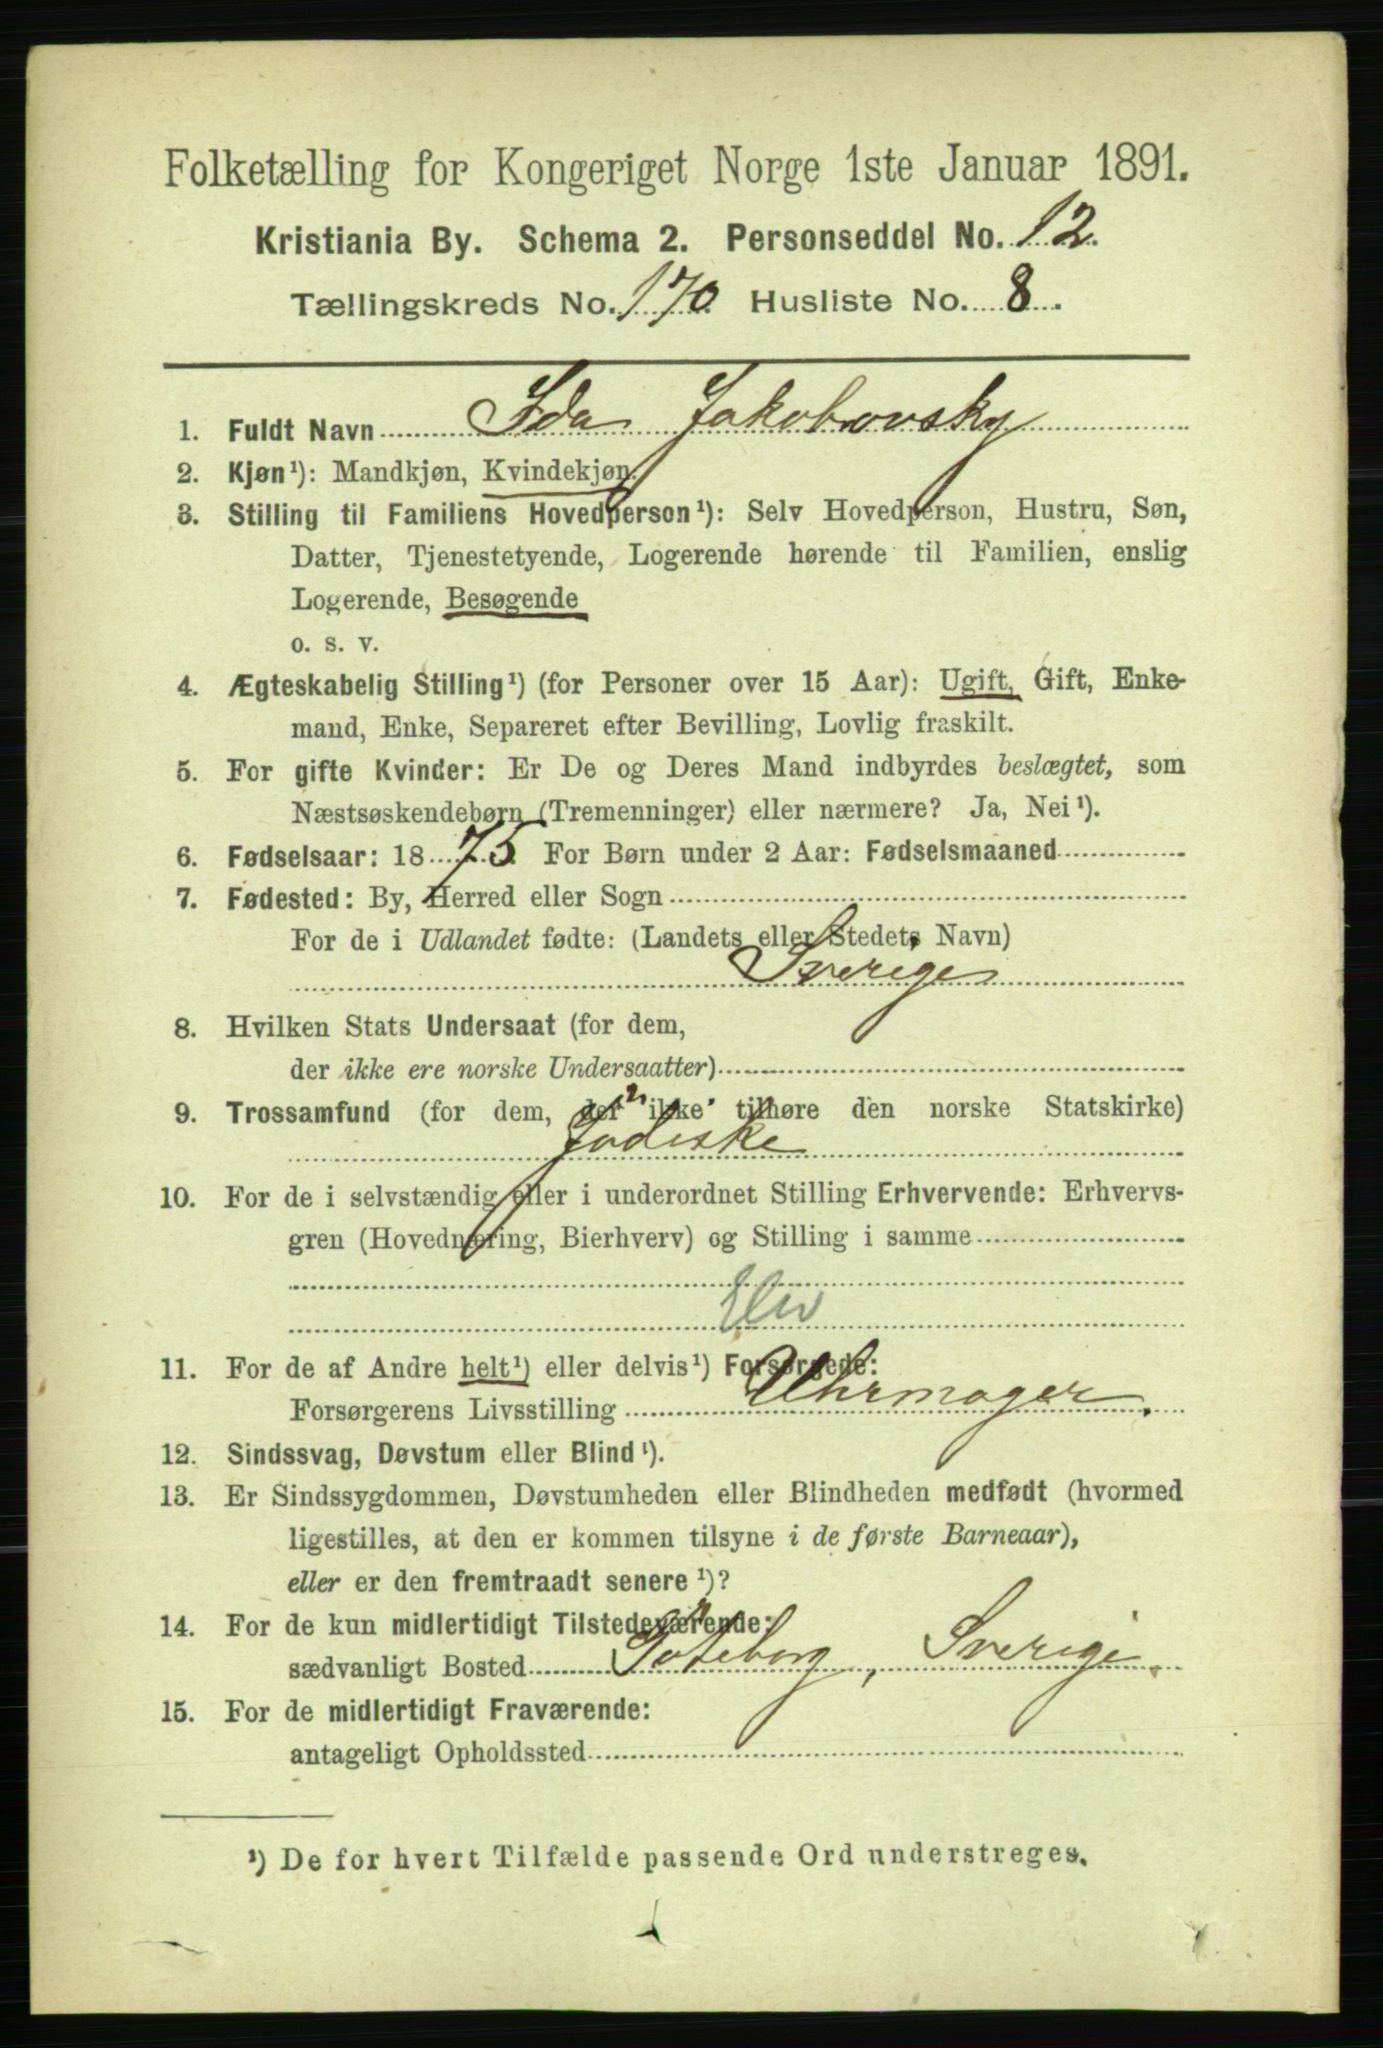 Folketælling for Kongeriget Norge 1ste Januar 1891.
Kristiania By. Schema 2. Personseddel No. 12.
Tællingskreds No. 170 Husliste No. 8.
1. Fuldt Navn Ida Jakobovsky
2. Kjøn¹): Mandkjøn, Kvindekjøn.
3. Stilling til Familiens Hovedperson¹): Selv Hovedperson, Hustru, Søn,
Datter, Tjenestetyende, Logerende hørende til Familien, enslig
Logerende, Besøgende
o. s. v.
4. Ægteskabelig Stilling¹) (for Personer over 15 Aar): Ugift, Gift, Enke-
mand, Enke, Separeret efter Bevilling, Lovlig fraskilt.
5. For gifte Kvinder: Er De og Deres Mand indbyrdes beslægtet, som
Næstsøskendebørn (Tremenninger) eller nærmere? Ja, Nei¹).
6. Fødselsaar: 1875. For Børn under 2 Aar: Fødselsmaaned
7. Fødested: By, Herred eller Sogn
For de i Udlandet fødte: (Landets eller Stedets Navn)
Sverige
8. Hvilken Stats Undersaat (for dem,
der ikke ere norske Undersaatter)
9. Trossamfund (for dem, der "ikke" tilhøre den norske Statskirke)
Jødiske
10. For de i selvstændig eller i underordnet Stilling Erhvervende: Erhvervs-
gren (Hovednæring, Bierhverv) og Stilling i samme
Elev
11. For de af Andre helt¹) eller delvis¹) Forsørgede:
Forsørgerens Livsstilling Uhrmager.
12. Sindssvag, Døvstum eller Blind¹).
13. Er Sindssygdommen, Døvstumheden eller Blindheden medfødt (hvormed
ligestilles, at den er kommen tilsyne i de første Barneaar),
eller er den fremtraadt senere¹)?
14. For de kun midlertidigt Tilstedeværende:
sædvanligt Bosted Göteborg, Sverige.
15. For de midlertidigt Fraværende:
antageligt Opholdssted
¹) De for hvert Tilfælde passende Ord understreges.